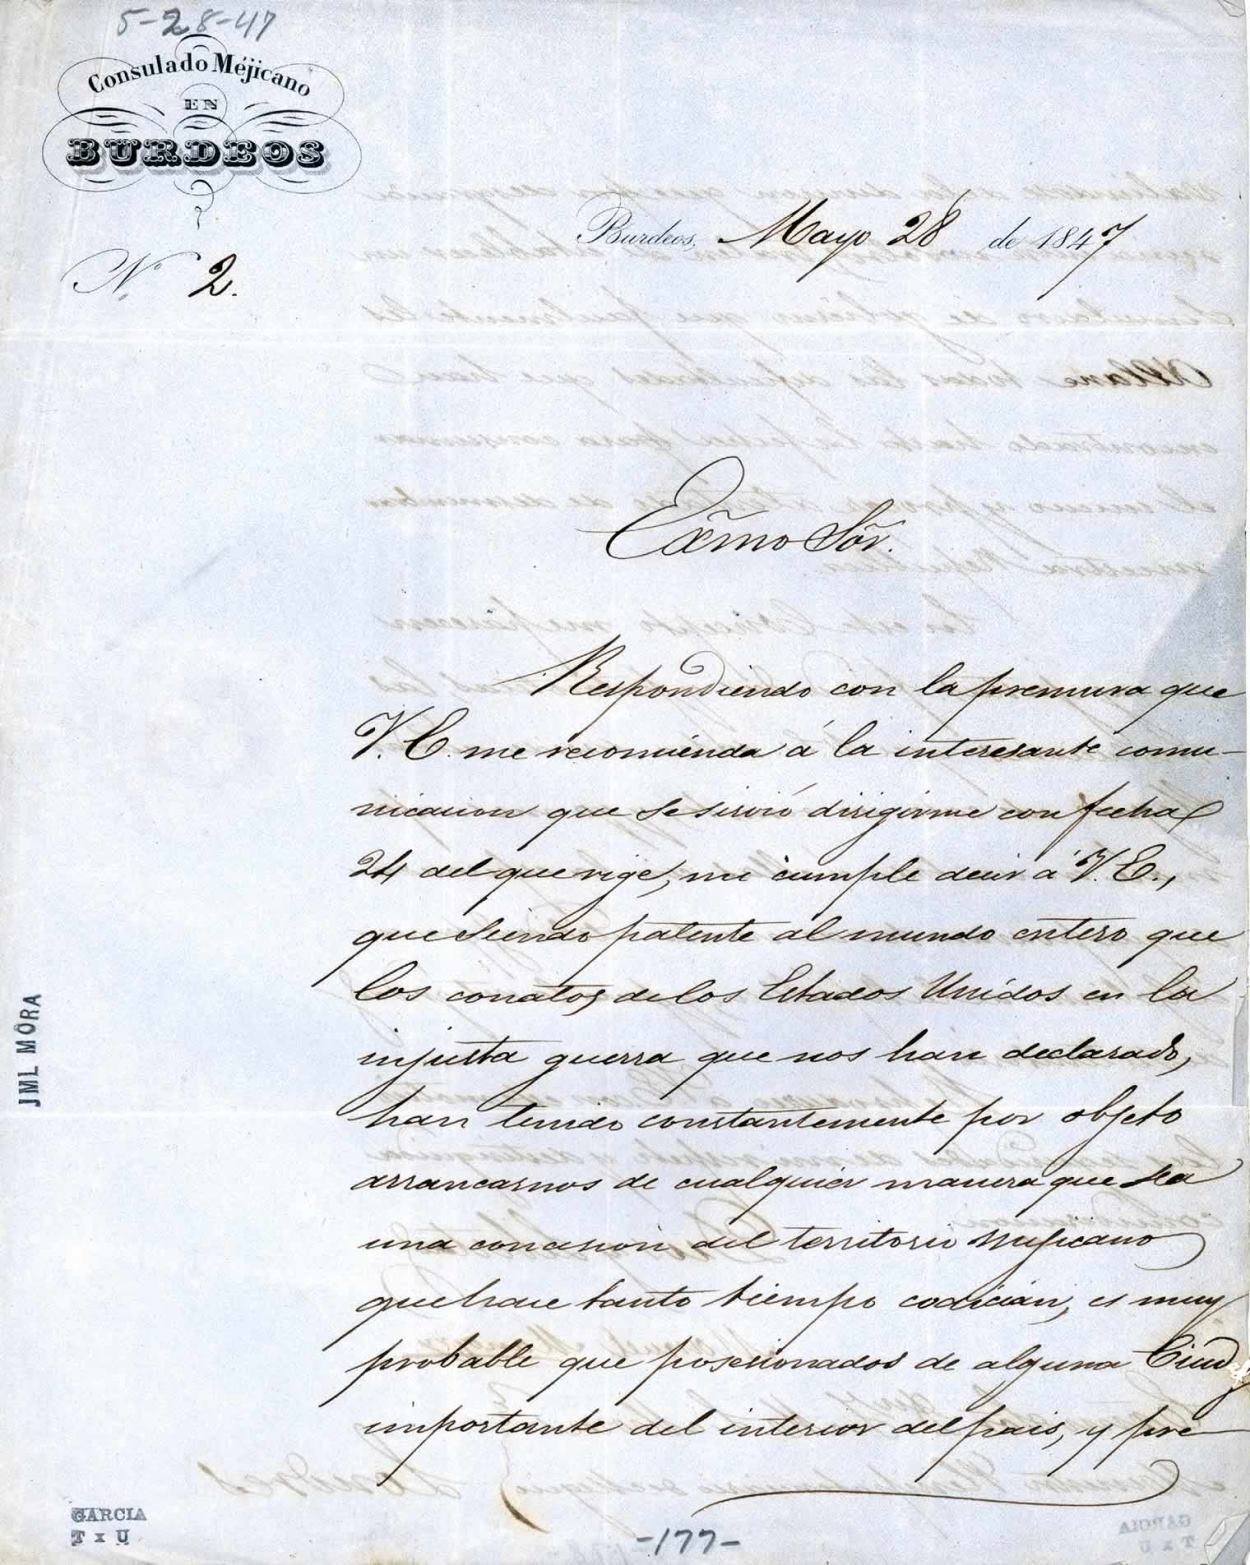 5-28-47
Consulado Méjicano
EN
BURDEOS
Burdeos, Mayo 28 de 1847
N. 2.
Exm̃o Sõr.
Respondiendo con la premura que
V. E. me recomienda á la interesante comu-
nicacion que se sirvió dirigirme con fecha
24 del que rige, me cumple decir á V. E.,
que siendo patente al mundo entero que
los conatos de los Estados Unidos en la
injusta guerra que nos han declarado,
han tenido constantemente por objeto
arrancarnos de cualquier manera que sea
una concesion del territorio mejicano
que hace tanto tiempo codician, es muy
probable que posesionados de alguna Ciud
importante del interior del pais, y pre
JML MORA
GARCIA
T x U
-177-